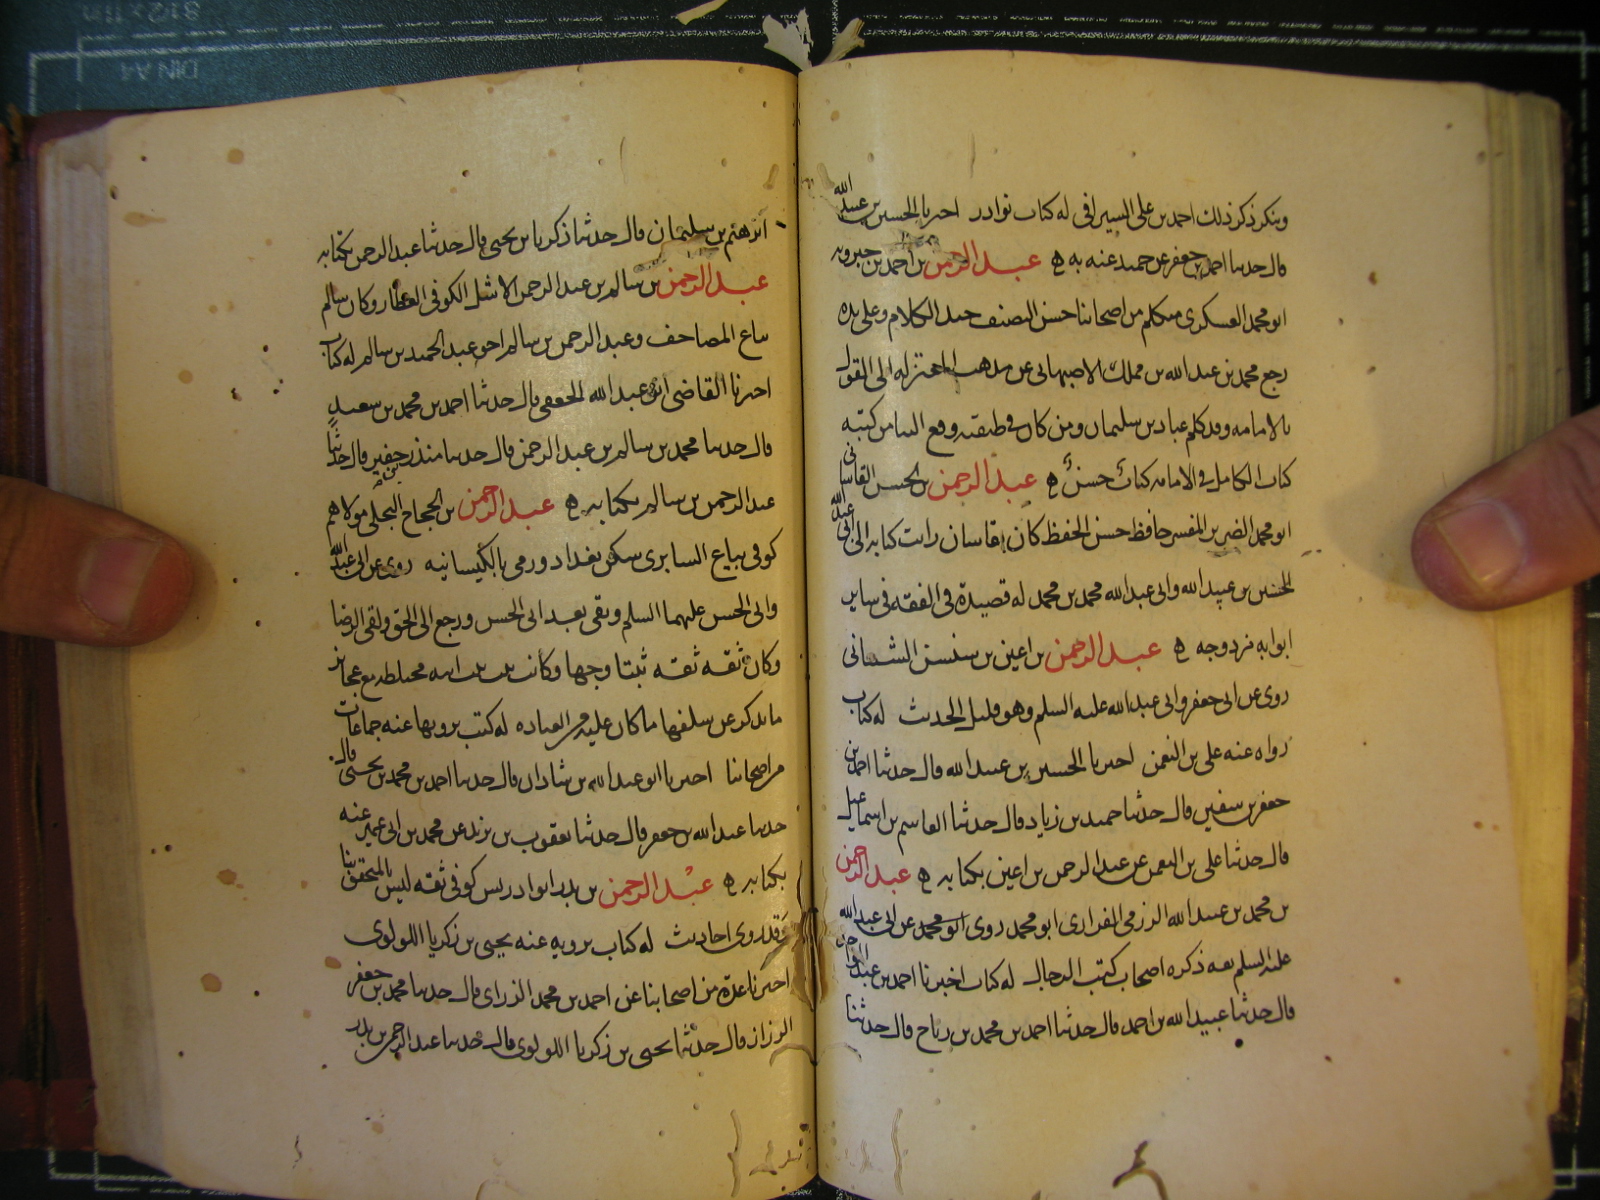 وينكر ذكر ذلك احمد بن علي السيرافي له كتاب نوادر اخبرنا الحسين بن عبيد الله
قال حدثنا احمد بن جعفر عن حميد عنه به ه عبد الرحمن بن احمد بن جبرويه
ابو محمد العسكري متكلم من اصحابنا حسن التصنيف جيد الكلام وعلى يده
رجع محمد بن عبد الله بن مملك الاصبهاني عن مذهب المعتزله الى القول
بالامامه وقد كلم عباد بن سليمان ومن كان في طبقته وقع الينا من كتبه
كتاب الكامل في الامامه كتاب حسن ه عبد الرحمن بن الحسن القاساني
ابو محمد الضرير المفسر حافظ حسن الحفظ كان بقاسان رايت كتابه الى ابي عبد الله
الحسين بن عبيد الله وابي عبد الله محمد بن محمد له قصيدة في الفقه في ساير
ابوابه مزدوجه ه عبد الرحمن بن اعين بن سنسن الشيباني
روى عن ابي جعفر وابي عبد الله عليه السلم وهو قليل الحديث له كتاب
رواه عنه علي بن النعمن اخبرنا الحسين بن عبيد الله قال حدثنا احمد بن
جعفر بن سفين قال حدثنا حميد بن زياد قال حدثنا القاسم بن اسماعيل
قال حدثنا علي بن النعمن عن عبد الرحمن بن اعين بكتابه ه عبد الرحمن
بن محمد بن عبيد الله الرزمي الفزاري ابو محمد روى عن ابي عبد الله
عليه السلم ثقه ذكره اصحاب كتب الرجال له كتاب اخبرنا احمد بن عبد الواحد
قال حدثنا عبيد الله بن احمد قال حدثنا احمد بن محمد بن رباح قال حدثنا
ابرهيم بن سليمان قال حدثنا زكريا بن يحيى قال حدثنا عبد الرحمن بكتابه
عبد الرحمن بن سالم بن عبد الرحمن الاشل الكوفي العطار وكان سالم
بياع المصاحف وعبد الرحمن بن سالم اخو عبد الحميد بن سالم له كتاب
اخبرنا القاضي ابو عبد الله الجعفي قال حدثنا احمد بن محمد بن سعيد
قال حدثنا محمد بن سالم بن عبد الرحمن قال حدثنا منذر بن جفير قال حدثنا
عبد الرحمن بن سالم بكتابه ه عبد الرحمن بن الحجاج البجلي مولاهم
كوفي بياع السابري سكن بغداد ورمي بالكيسانيه روى عن ابي عبد الله
وابي الحسن عليهما السلم وبقي بعد ابي الحسن ورجع الى الحق ولقي الرضا
وكان ثقه ثقه ثبتا وجها وكانت بنت بنت ابنه مختلطه مع عجايز
ما تذكر عن سلفها ما كان عليه من العباده له كتب يرويها عنه جماعات
من اصحابنا اخبرنا ابو عبد الله بن شاذان قال حدثنا احمد بن محمد بن يحيى قال
حدثنا عبد الله بن جعفر قال حدثنا يعقوب بن يزيد عن محمد بن ابي عمير عنه
بكتابه ه عبد الرحمن بن بدر ابو ادريس كوفي ثقه ليس بالمتحقق بنا
وقد روى احاديث له كتاب يرويه عنه يحيى بن زكريا اللولوي
اخبرنا عدة من اصحابنا عن احمد بن محمد الزراري قال حدثنا محمد بن جعفر
الرزاز قال حدثنا يحيى بن زكريا اللولوي قال حدثنا عبد الرحمن بن بدر